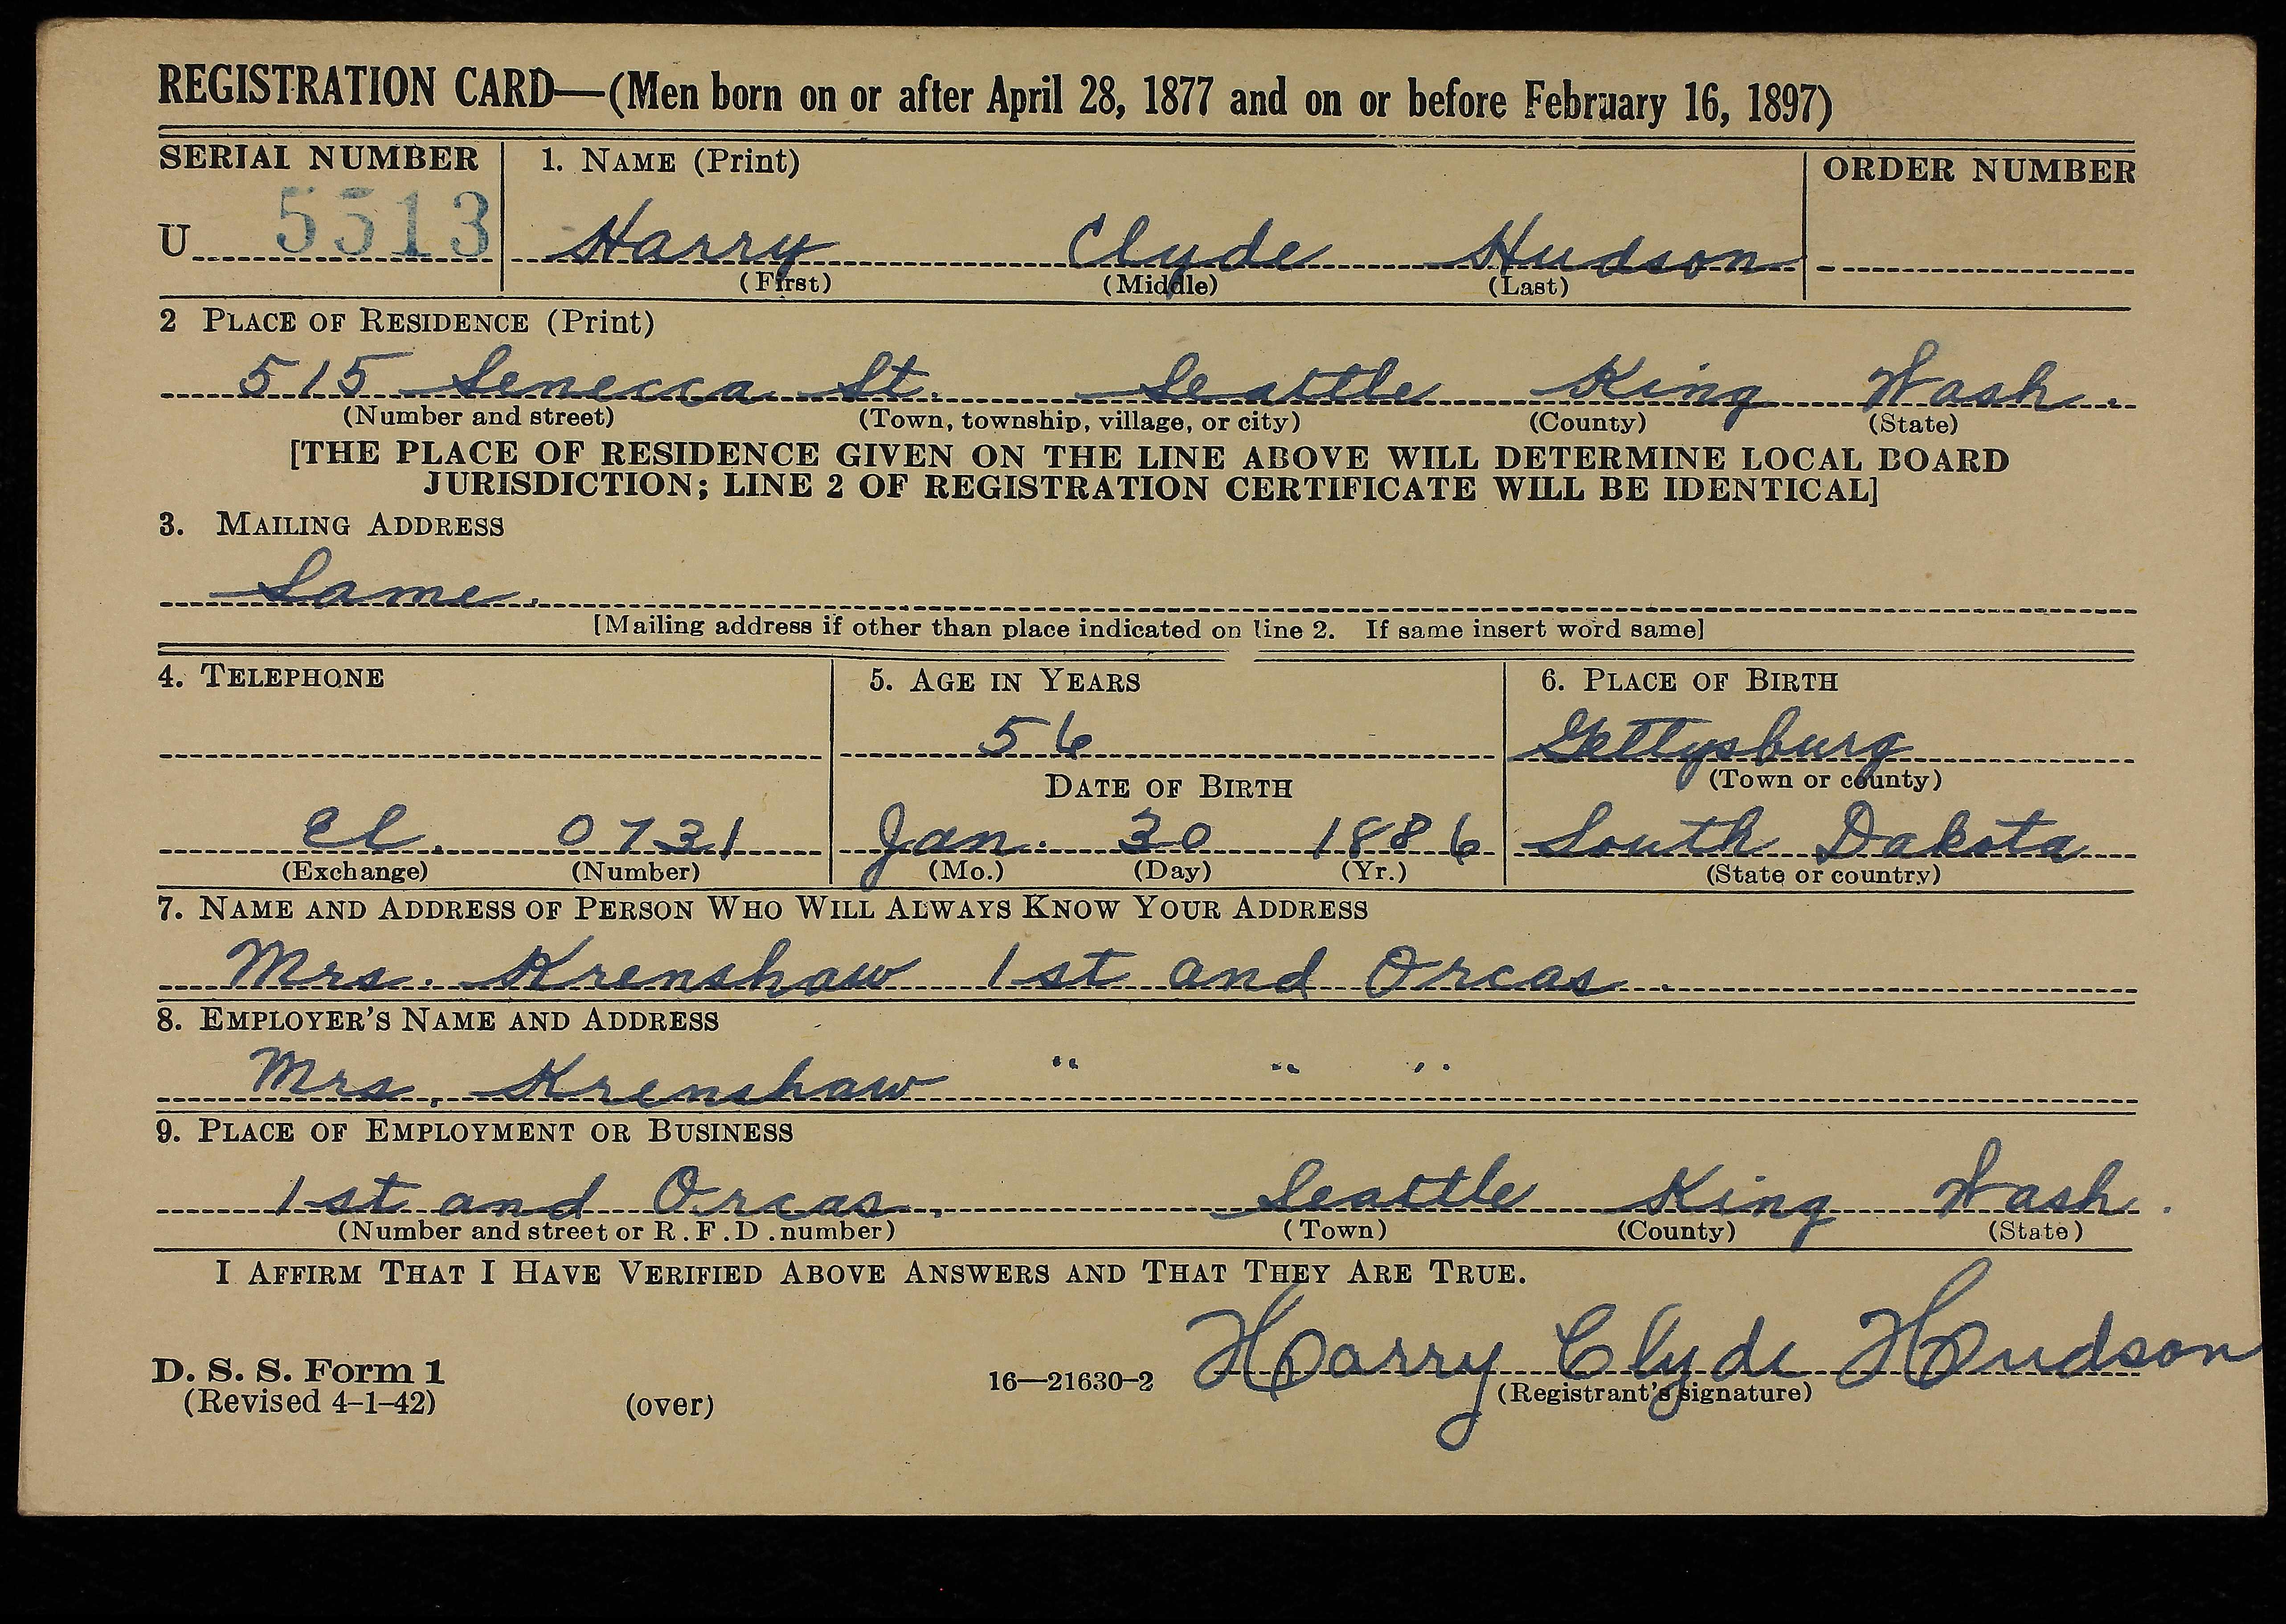 REGISTRATION CARD—(Men born on or after April 28, 1877 and on or before February 16, 1897)
SERIAL NUMBER 1. NAME (Print) ORDER NUMBER
U 5513 Harry Clyde Hudson
(First) (Middle) (Last)
2 PLACE OF RESIDENCE (Print)
515 Senecca St. Seattle King Wash.
(Number and street) (Town, township, village, or city) (County) (State)
[THE PLACE OF RESIDENCE GIVEN ON THE LINE ABOVE WILL DETERMINE LOCAL BOARD
JURISDICTION; LINE 2 OF REGISTRATION CERTIFICATE WILL BE IDENTICAL]
3. MAILING ADDRESS
Same.
[Mailing address if other than place indicated on line 2. If same insert word same]
4. TELEPHONE 5. AGE IN YEARS 6. PLACE OF BIRTH
56 Gettysburg
DATE OF BIRTH (Town or county)
El. 0731 Jan. 30 1886 South Dakota
(Exchange) (Number) (Mo.) (Day) (Yr.) (State or country)
7. NAME AND ADDRESS OF PERSON WHO WILL ALWAYS KNOW YOUR ADDRESS
Mrs. Krenshaw 1st and Orcas.
8. EMPLOYER'S NAME AND ADDRESS
Mrs. Krenshaw " " "
9. PLACE OF EMPLOYMENT OR BUSINESS
1st and Orcas. Seattle King Wash.
(Number and street or R.F.D. number) (Town) (County) (State)
I AFFIRM THAT I HAVE VERIFIED ABOVE ANSWERS AND THAT THEY ARE TRUE.
Harry Clyde Hudson
D. S. S. Form 1 16—21630-2 (Registrant's signature)
(Revised 4-1-42) (over)